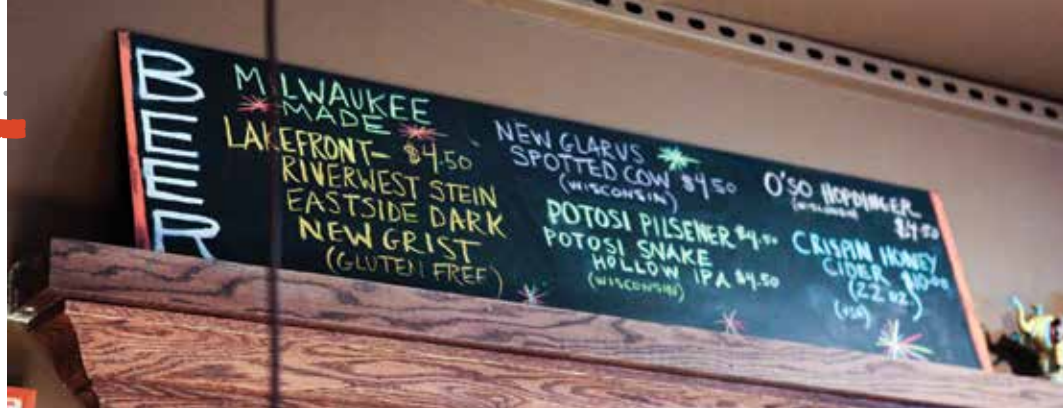 BEER
MILWAUKEE
MADE
LAKEFRONT- $4.50
RIVERWEST STEIN
EASTSIDE DARK
NEW GRIST
(GLUTEN FREE)
NEW GLARUS
SPOTTED COW $4.50
(WISCONSIN)
POTOSI PILSENER $4.50
POTOSI SNAKE
HOLLOW IPA $4.50
(WISCONSIN)
O'SO HOPDINGER
(WISCONSIN)
$4.50
CRISPIN HONEY
CIDER $10.00
(22 OZ)
(USA)